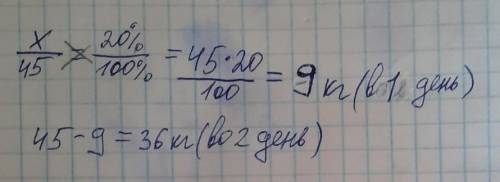 x/45 = 20%/100% = 45·20/100 = 9 кг (во 1 день)
45-9=36кг(во 2 день)